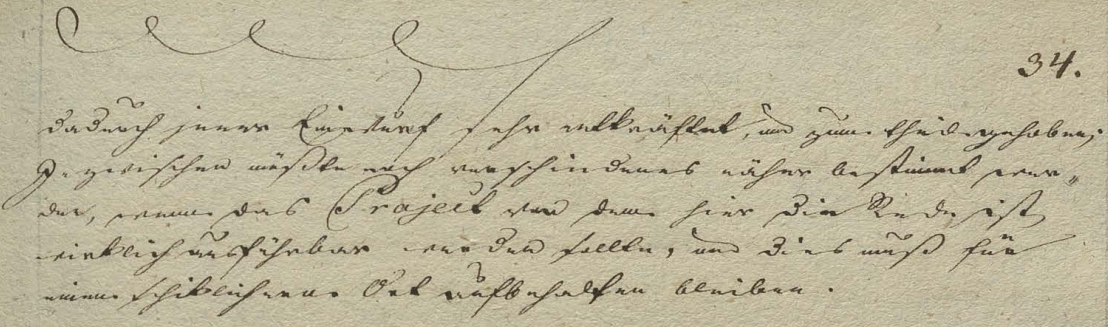 34.
dadurch jener Einwurf sehr entkräftet, und zum theil gehoben;
Inzwischen müßte noch verschiedenes näher bestimmt wer-
den, wenn das Project von dem hier die Rede ist,
wirklich ausführbar werden sollte, und dies muß für
einen schiklichern Ort aufbehalten bleiben.